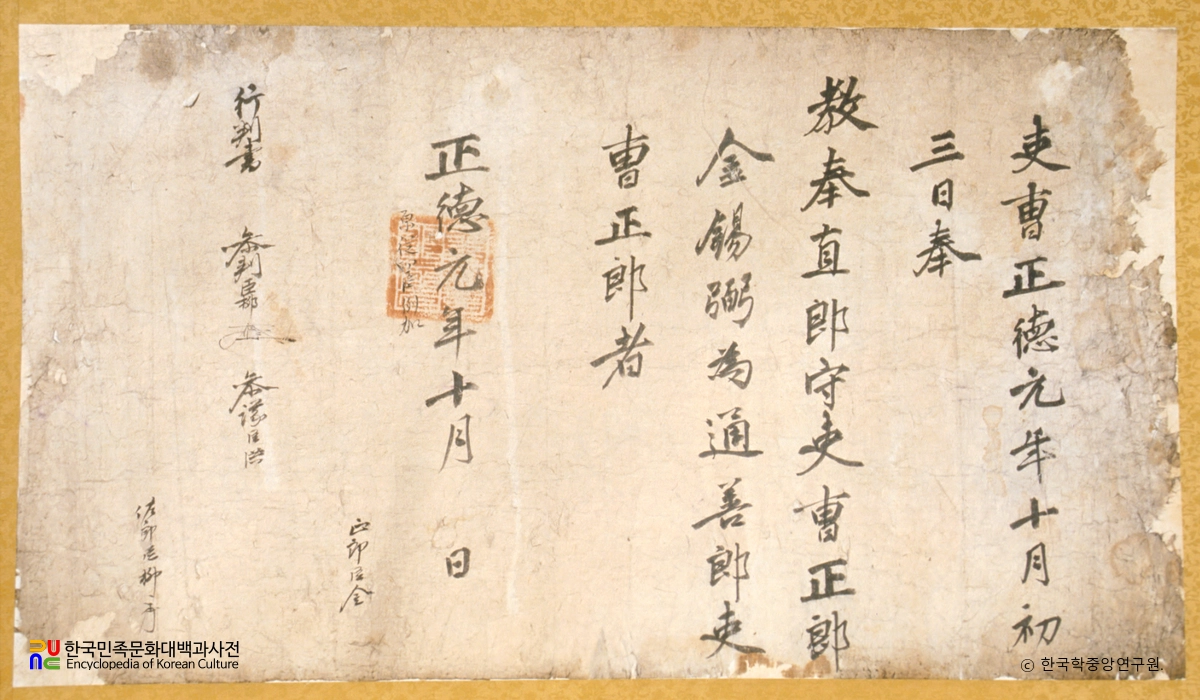 吏曺正德元年十月初
三日奉
教奉直郎守吏曺正郎
金錫弼為通善郎吏
曺正郎者
正德元年十月 日
正郎臣金
行判書 叅判臣 叅議臣洪
佐郎臣柳
한국민족문화대백과사전
Encyclopedia of Korean Culture
© 한국학중앙연구원.